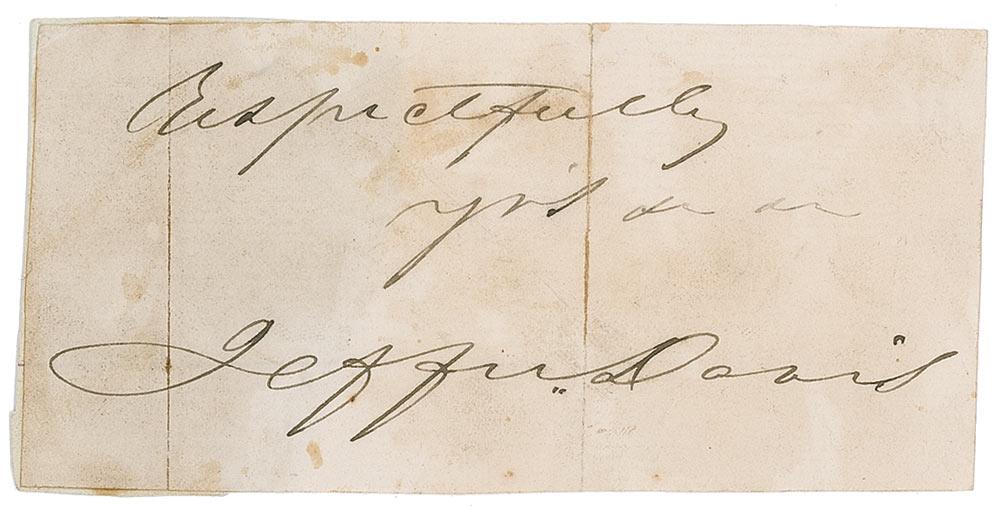 Respectfully
yr's &c &c
Jeffn. Davis